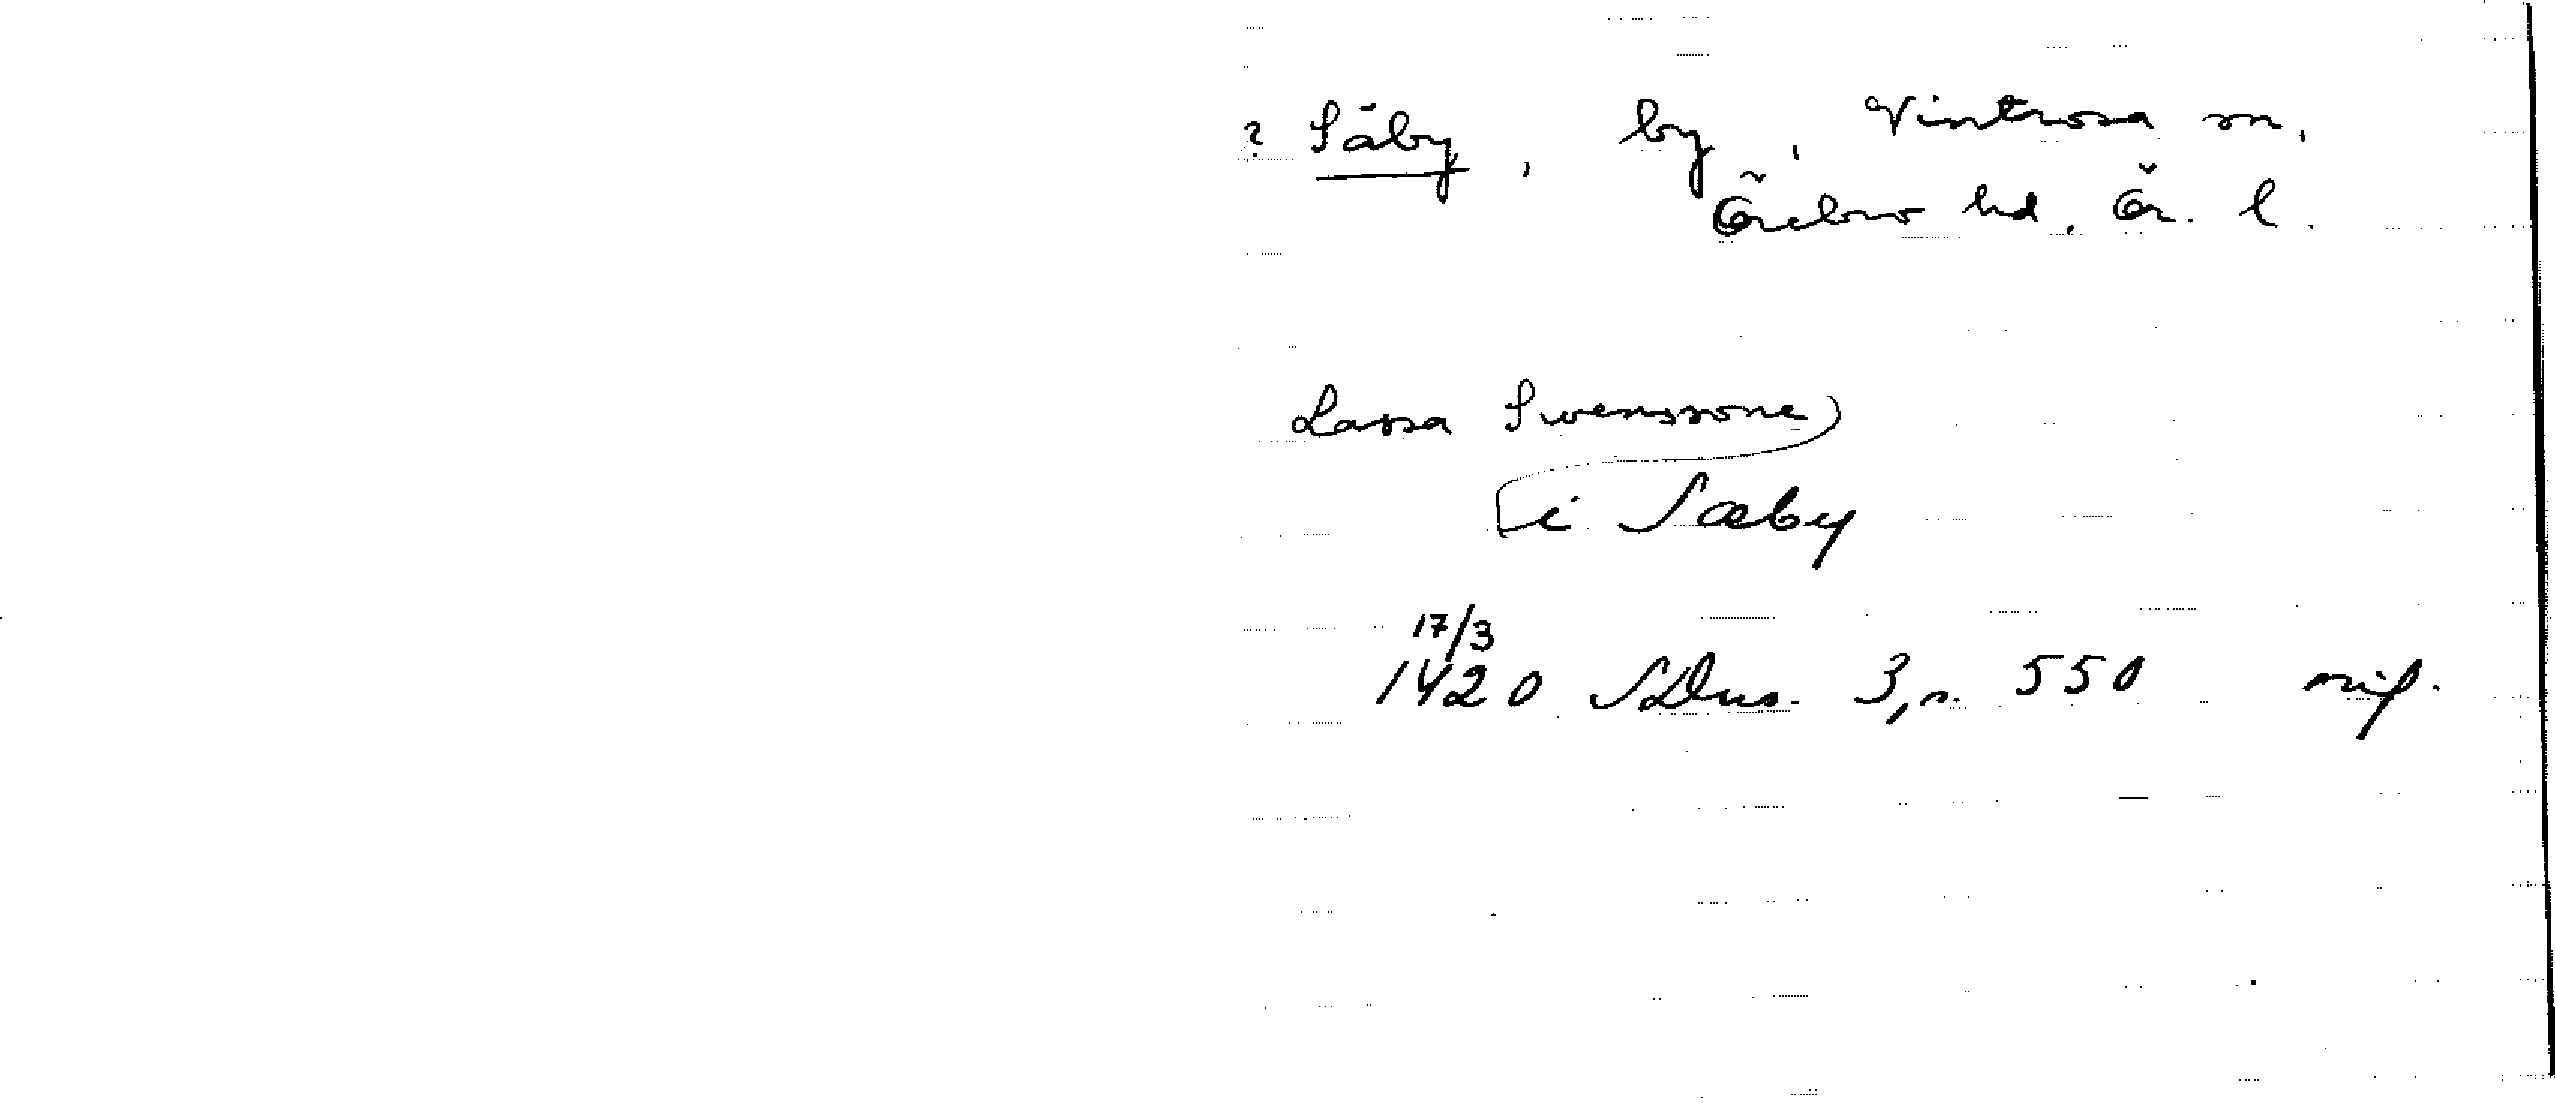 ? Säby, by, Vintrosa sn,
Örebro hd. Ör. l.
Lassa Swenssone
i Sæby
17/3
1420 SDns. 3, s. 550 orig.